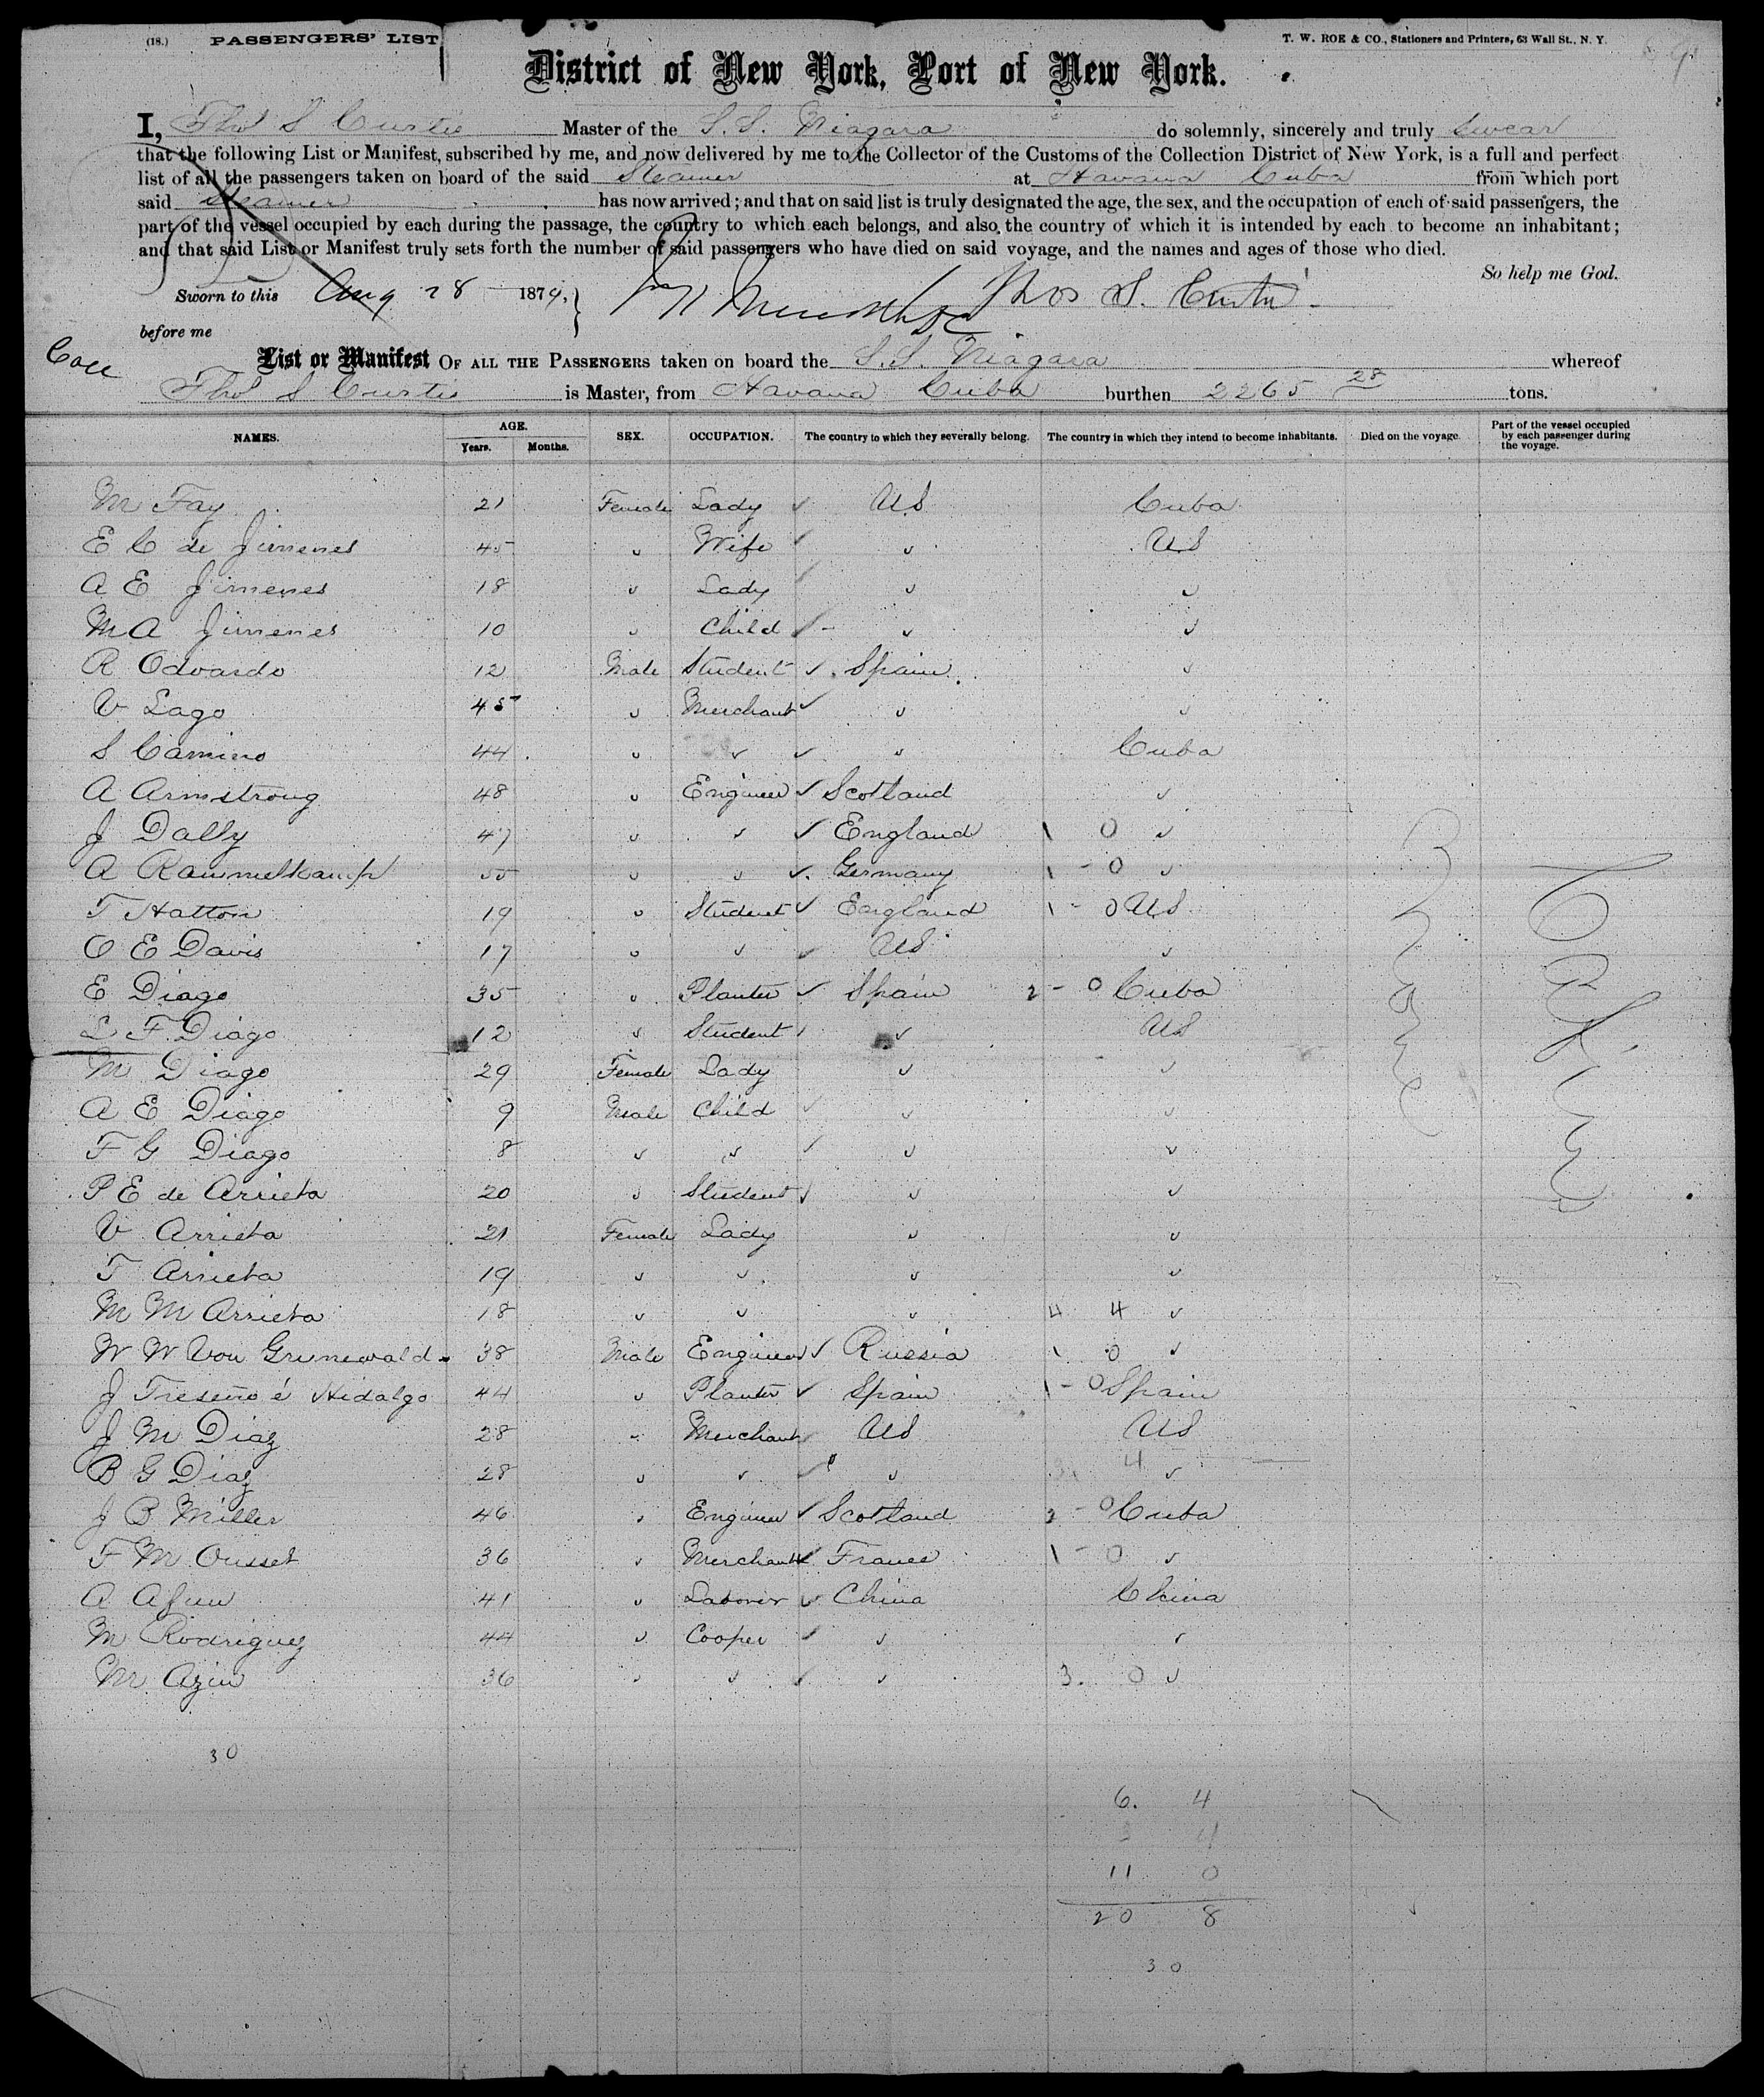 (18.) PASSENGERS' LIST
T. W. ROE & CO., Stationers and Printers, 63 Wall St., N. Y.
District of New York, Port of New York.
I, Thos S Curtis Master of the S.S. Niagara do solemnly, sincerely and truly swear
that the following List or Manifest, subscribed by me, and now delivered by me to the Collector of the Customs of the Collection District of New York, is a full and perfect
list of all the passengers taken on board of the said Steamer at Havana Cuba from which port
said Steamer has now arrived; and that on said list is truly designated the age, the sex, and the occupation of each of said passengers, the
part of the vessel occupied by each during the passage, the country to which each belongs, and also the country of which it is intended by each to become an inhabitant;
and that said List or Manifest truly sets forth the number of said passengers who have died on said voyage, and the names and ages of those who died.
So help me God.
Sworn to this Aug 28 1879, Thos S. Curtis
before me
List or Manifest OF ALL THE PASSENGERS taken on board the S.S. Niagara whereof
Thos S Curtis is Master, from Havana Cuba burthen 2265 28 tons.
NAMES. AGE. Years. Months. SEX. OCCUPATION. The country to which they severally belong. The country in which they intend to become inhabitants. Died on the voyage. Part of the vessel occupied by each passenger during the voyage.
M Fay 21 Female Lady ✓ US Cuba
E C de Jimenes 45 " Wife ✓ " US
A E Jimenes 18 " Lady ✓ " "
M A Jimenes 10 " Child ✓ - " "
R Odvardo 12 Male Student ✓ Spain "
V Lago 45 " Merchant ✓ " "
S Camino 44 " " ✓ " Cuba
A Armstrong 48 " Engineer ✓ Scotland "
J Dally 47 " " ✓ England 1 0 "
A Rammelkamp 55 " " ✓ Germany 1 - 0 "
T Hatton 19 " Student ✓ England 1 - 0 US
O E Davis 17 " " ✓ US "
E Diago 35 " Planter ✓ Spain 2 - 0 Cuba
L F Diago 12 " Student ✓ " US
M Diago 29 Female Lady " "
A E Diago 9 Male Child ✓ " "
F G Diago 8 " " ✓ " "
P E de Arrieta 20 " Student ✓ " "
V Arrieta 21 Female Lady " "
T Arrieta 19 " " " "
M M Arrieta 18 " " " 4 4 "
W W Von Grunewald 38 Male Engineer ✓ Russia 1 0 "
J Treseño é Hidalgo 44 " Planter ✓ Spain 1 - 0 Spain
J M Diaz 28 " Merchant ✓ US US
B G Diaz 28 " " ✓ " 3. 4 "
J B Miller 46 " Engineer ✓ Scotland 2 - 0 Cuba
F M Ousset 36 " Merchant ✓ France 1 - 0 "
A Afun 41 " Laborer ✓ China China
M Rodriguez 44 " Cooper ✓ " "
M Azin 36 " " ✓ " 3. 0 "
30
6. 4
3 4
11 0
20 8
30